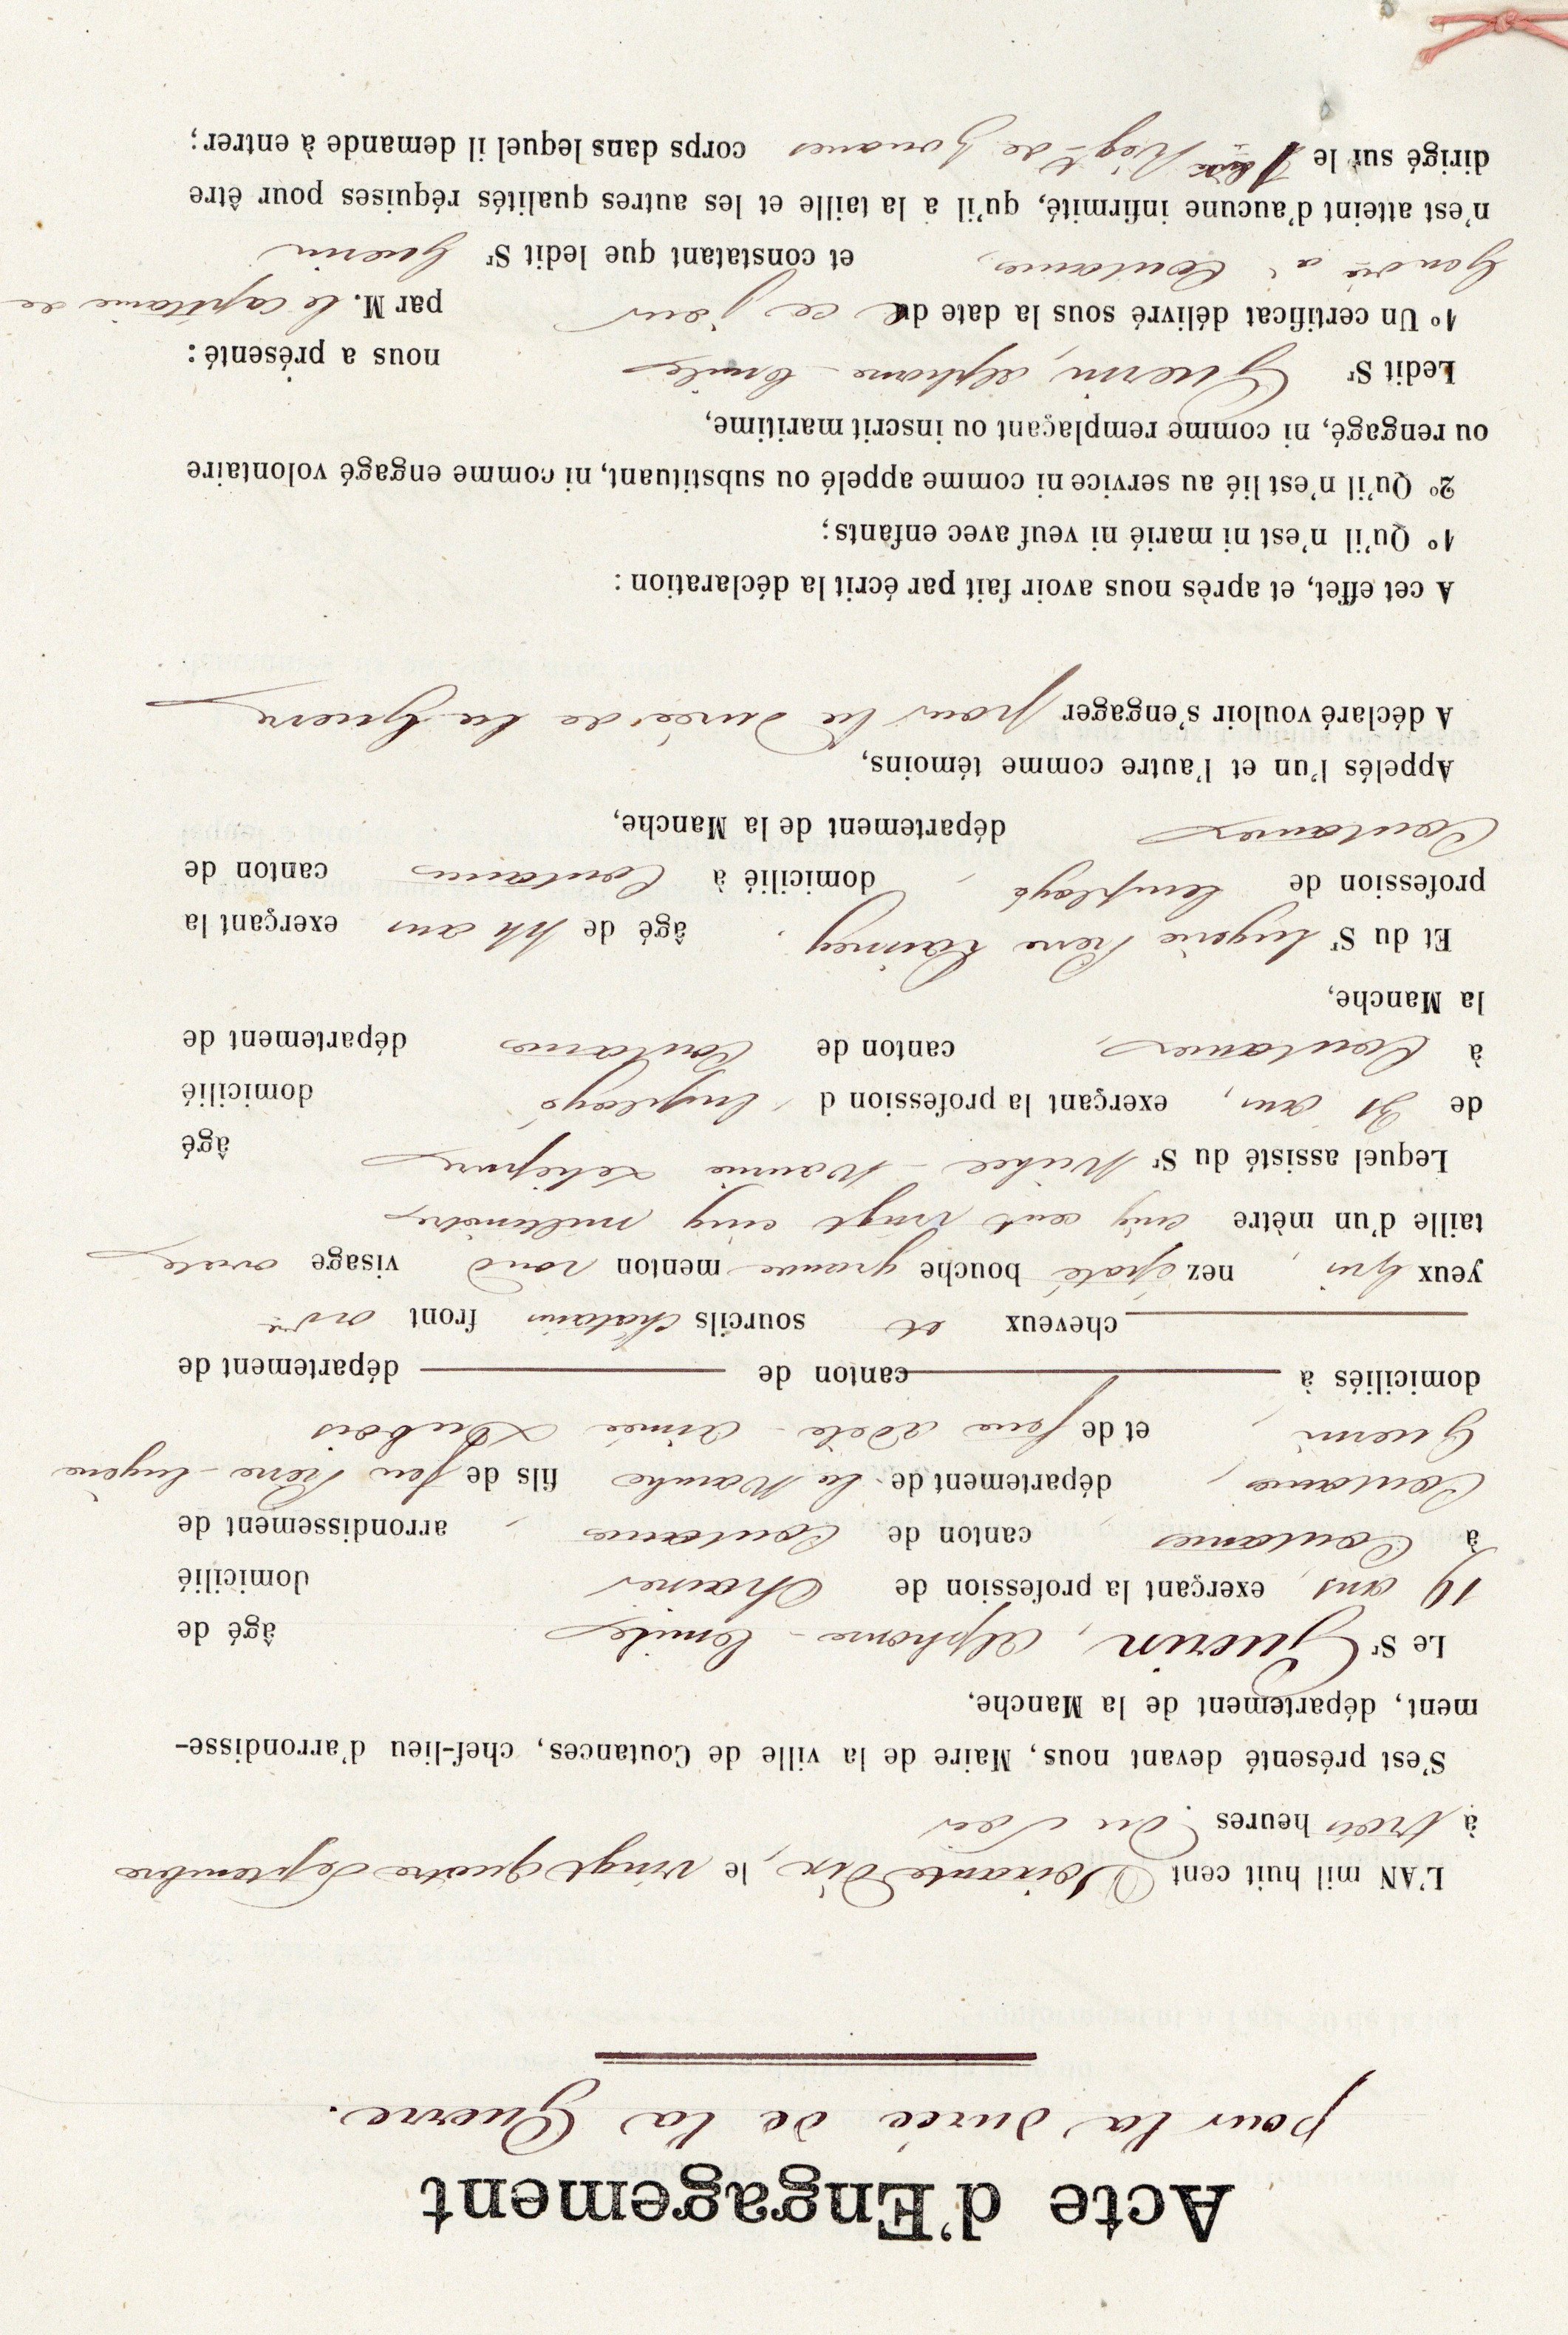 Acte d'Engagement
pour la durée de la Guerre.
L'AN mil huit cent Soixante Dix, le vingt quatre Septembre
à trois heures du Soir
S'est présenté devant nous, Maire de la ville de Coutances, chef-lieu d'arrondisse-
ment, département de la Manche,
Le Sr Guerin, Alphonse - Emile âgé de
19 ans, exerçant la profession de domicilié
à Coutances, canton de Coutances, arrondissement de
Coutances, département de la Manche fils de feu Pierre - Eugène
Guerin, et de feue Adèle - Aimée Dubois
domiciliés à canton de département de
cheveux et sourcils châtains front ordre
yeux gris, nez épaté bouche grande menton rond visage ovale
taille d'un mètre cinq cent vingt cinq millimètres
Lequel assisté du Sr Michel - âgé
de 31 ans, exerçant la profession d'Employé domicilié
à Coutances, canton de Coutances département de
la Manche,
Et du Sr Eugène Pierre, âgé de 44 ans exerçant la
profession de Employé, domicilié à Coutances canton de
Coutances département de la Manche,
Appelés l'un et l'autre comme témoins,
A déclaré vouloir s'engager pour la durée de la Guerre
A cet effet, et après nous avoir fait par écrit la déclaration :
1° Qu'il n'est ni marié ni veuf avec enfants ;
2° Qu'il n'est lié au service ni comme appelé ou substituant, ni comme engagé volontaire
ou rengagé, ni comme remplaçant ou inscrit maritime,
Ledit Sr Guerin, Alphonse - Emile nous a présenté :
1° Un certificat délivré sous la date de ce jour par M. le capitaine de
Gendie à Coutances, et constatant que ledit Sr Guerin
n'est atteint d'aucune infirmité, qu'il a la taille et les autres qualités réquises pour être
dirigé sur le Regt de Zouaves corps dans lequel il demande à entrer ;